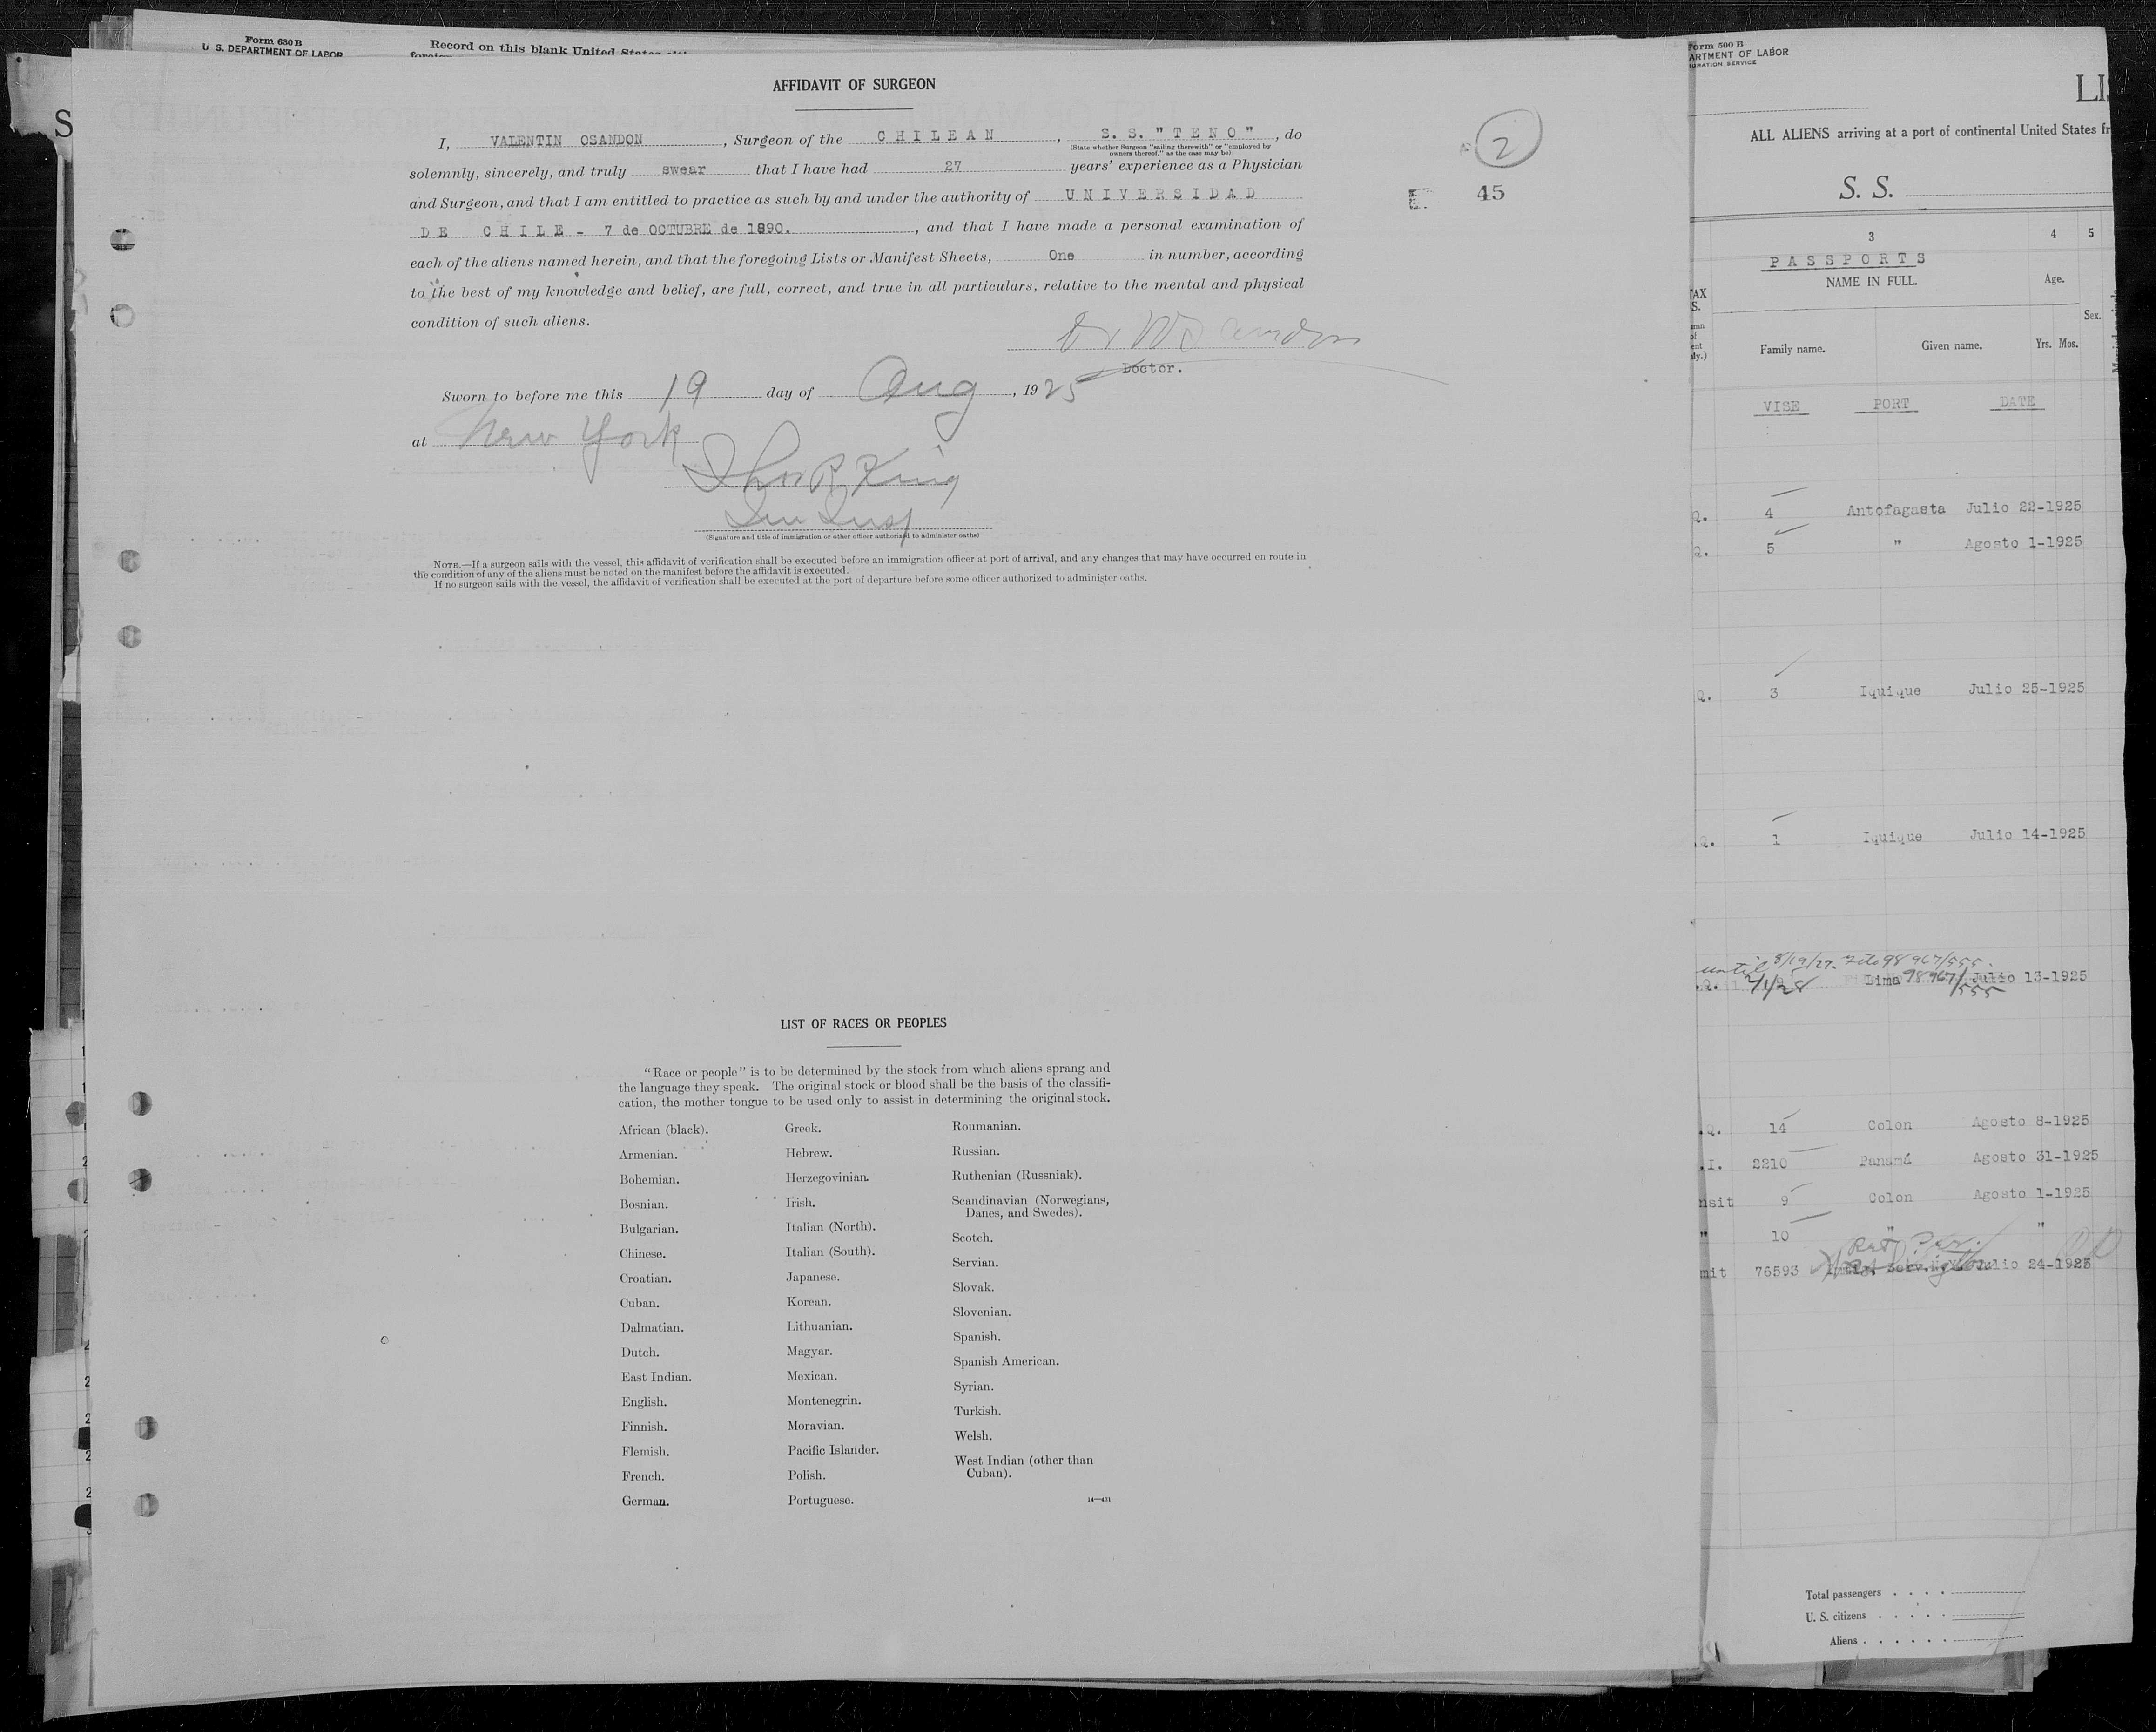 Form 630 B
U. S. DEPARTMENT OF LABOR
Record on this blank United States
S
AFFIDAVIT OF SURGEON
I, VALENTIN OSANDON, Surgeon of the CHILEAN, S. S. "TENO", do
(State whether Surgeon "sailing therewith" or "employed by
owners thereof," as the case may be)
solemnly, sincerely, and truly swear that I have had 27 years' experience as a Physician
and Surgeon, and that I am entitled to practice as such by and under the authority of UNIVERSIDAD
DE CHILE - 7 de OCTUBRE de 1890., and that I have made a personal examination of
each of the aliens named herein, and that the foregoing Lists or Manifest Sheets, One in number, according
to the best of my knowledge and belief, are full, correct, and true in all particulars, relative to the mental and physical
condition of such aliens.
Doctor.
Sworn to before me this 19 day of Aug, 1925
at New York
Thos R King
Imm Insp
(Signature and title of immigration or other officer authorized to administer oaths)
NOTE.—If a surgeon sails with the vessel, this affidavit of verification shall be executed before an immigration officer at port of arrival, and any changes that may have occurred en route in
the condition of any of the aliens must be noted on the manifest before the affidavit is executed.
If no surgeon sails with the vessel, the affidavit of verification shall be executed at the port of departure before some officer authorized to administer oaths.
2
45
LIST OF RACES OR PEOPLES
"Race or people" is to be determined by the stock from which aliens sprang and
the language they speak. The original stock or blood shall be the basis of the classifi-
cation, the mother tongue to be used only to assist in determining the original stock.
African (black).
Armenian.
Bohemian.
Bosnian.
Bulgarian.
Chinese.
Croatian.
Cuban.
Dalmatian.
Dutch.
East Indian.
English.
Finnish.
Flemish.
French.
German.
Greek.
Hebrew.
Herzegovinian.
Irish.
Italian (North).
Italian (South).
Japanese.
Korean.
Lithuanian.
Magyar.
Mexican.
Montenegrin.
Moravian.
Pacific Islander.
Polish.
Portuguese.
Roumanian.
Russian.
Ruthenian (Russniak).
Scandinavian (Norwegians,
Danes, and Swedes).
Scotch.
Servian.
Slovak.
Slovenian.
Spanish.
Spanish American.
Syrian.
Turkish.
Welsh.
West Indian (other than
Cuban).
14—431
Form 500 B
ARTMENT OF LABOR
IGRATION SERVICE
LIS
ALL ALIENS arriving at a port of continental United States fr
S. S.
3 4 5
PASSPORTS
NAME IN FULL. Age.
Sex.
Family name. Given name. Yrs. Mos.
VISE PORT DATE
Q. 4 Antofagasta Julio 22-1925
Q. 5 " Agosto 1-1925
Q. 3 Iquique Julio 25-1925
Q. 1 Iquique Julio 14-1925
until 8/19/27. File 98967/555.
Q. 2/1/28 Lima 98967/555 Julio 13-1925
Q. 14 Colon Agosto 8-1925
.I. 2210 Panamá Agosto 31-1925
nsit 9 Colon Agosto 1-1925
" 10 " "
mit 76593 Julio 24-1925
Total passengers
U. S. citizens
Aliens